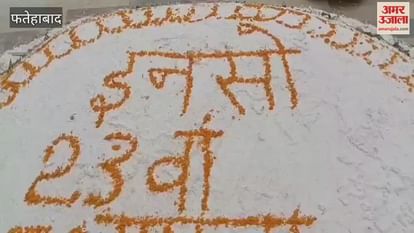 फतेहाबाद
अमर उजाला
amarujala.com
इनसो
23वां